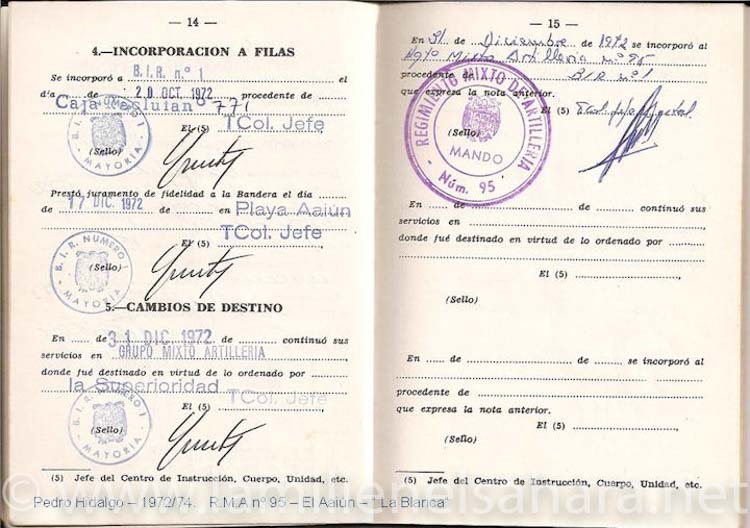 — 14 —
4.—INCORPORACION A FILAS
Se incorporó a B. I. R. n.º 1 el
día de 20 OCT. 1972 procedente de
Caja Recluta nº 771
El (5) TCol. Jefe
B. I. R. NUMERO 1
(Sello)
MAYORIA
Prestó juramento de fidelidad a la Bandera el día
de 17 DIC. 1972 de en Playa Aaiún
El (5) TCol. Jefe
B. I. R. NUMERO 1
(Sello)
MAYORIA
5.—CAMBIOS DE DESTINO
En de 31 DIC 1972 de continuó sus
servicios en GRUPO MIXTO ARTILLERIA
donde fué destinado en virtud de lo ordenado por
la Superioridad
El (5) TCol. Jefe
B. I. R. NUMERO 1
(Sello)
MAYORIA
(5) Jefe del Centro de Instrucción, Cuerpo, Unidad, etc.
— 15 —
En 31 de Diciembre de 1972 se incorporó al
Mixto Artilleria nº 95
procedente de BIR nº 1
que expresa la nota anterior.
El (5)
REGIMIENTO MIXTO DE ARTILLERIA
(Sello)
MANDO
Núm. 95
En de de continuó sus
servicios en
donde fué destinado en virtud de lo ordenado por
El (5)
(Sello)
En de de se incorporó al
procedente de
que expresa la nota anterior.
El (5)
(Sello)
(5) Jefe del Centro de Instrucción, Cuerpo, Unidad, etc.
Pedro Hidalgo – 1972/74. R.M.A nº 95 – El Aaiún – "La Blanca"